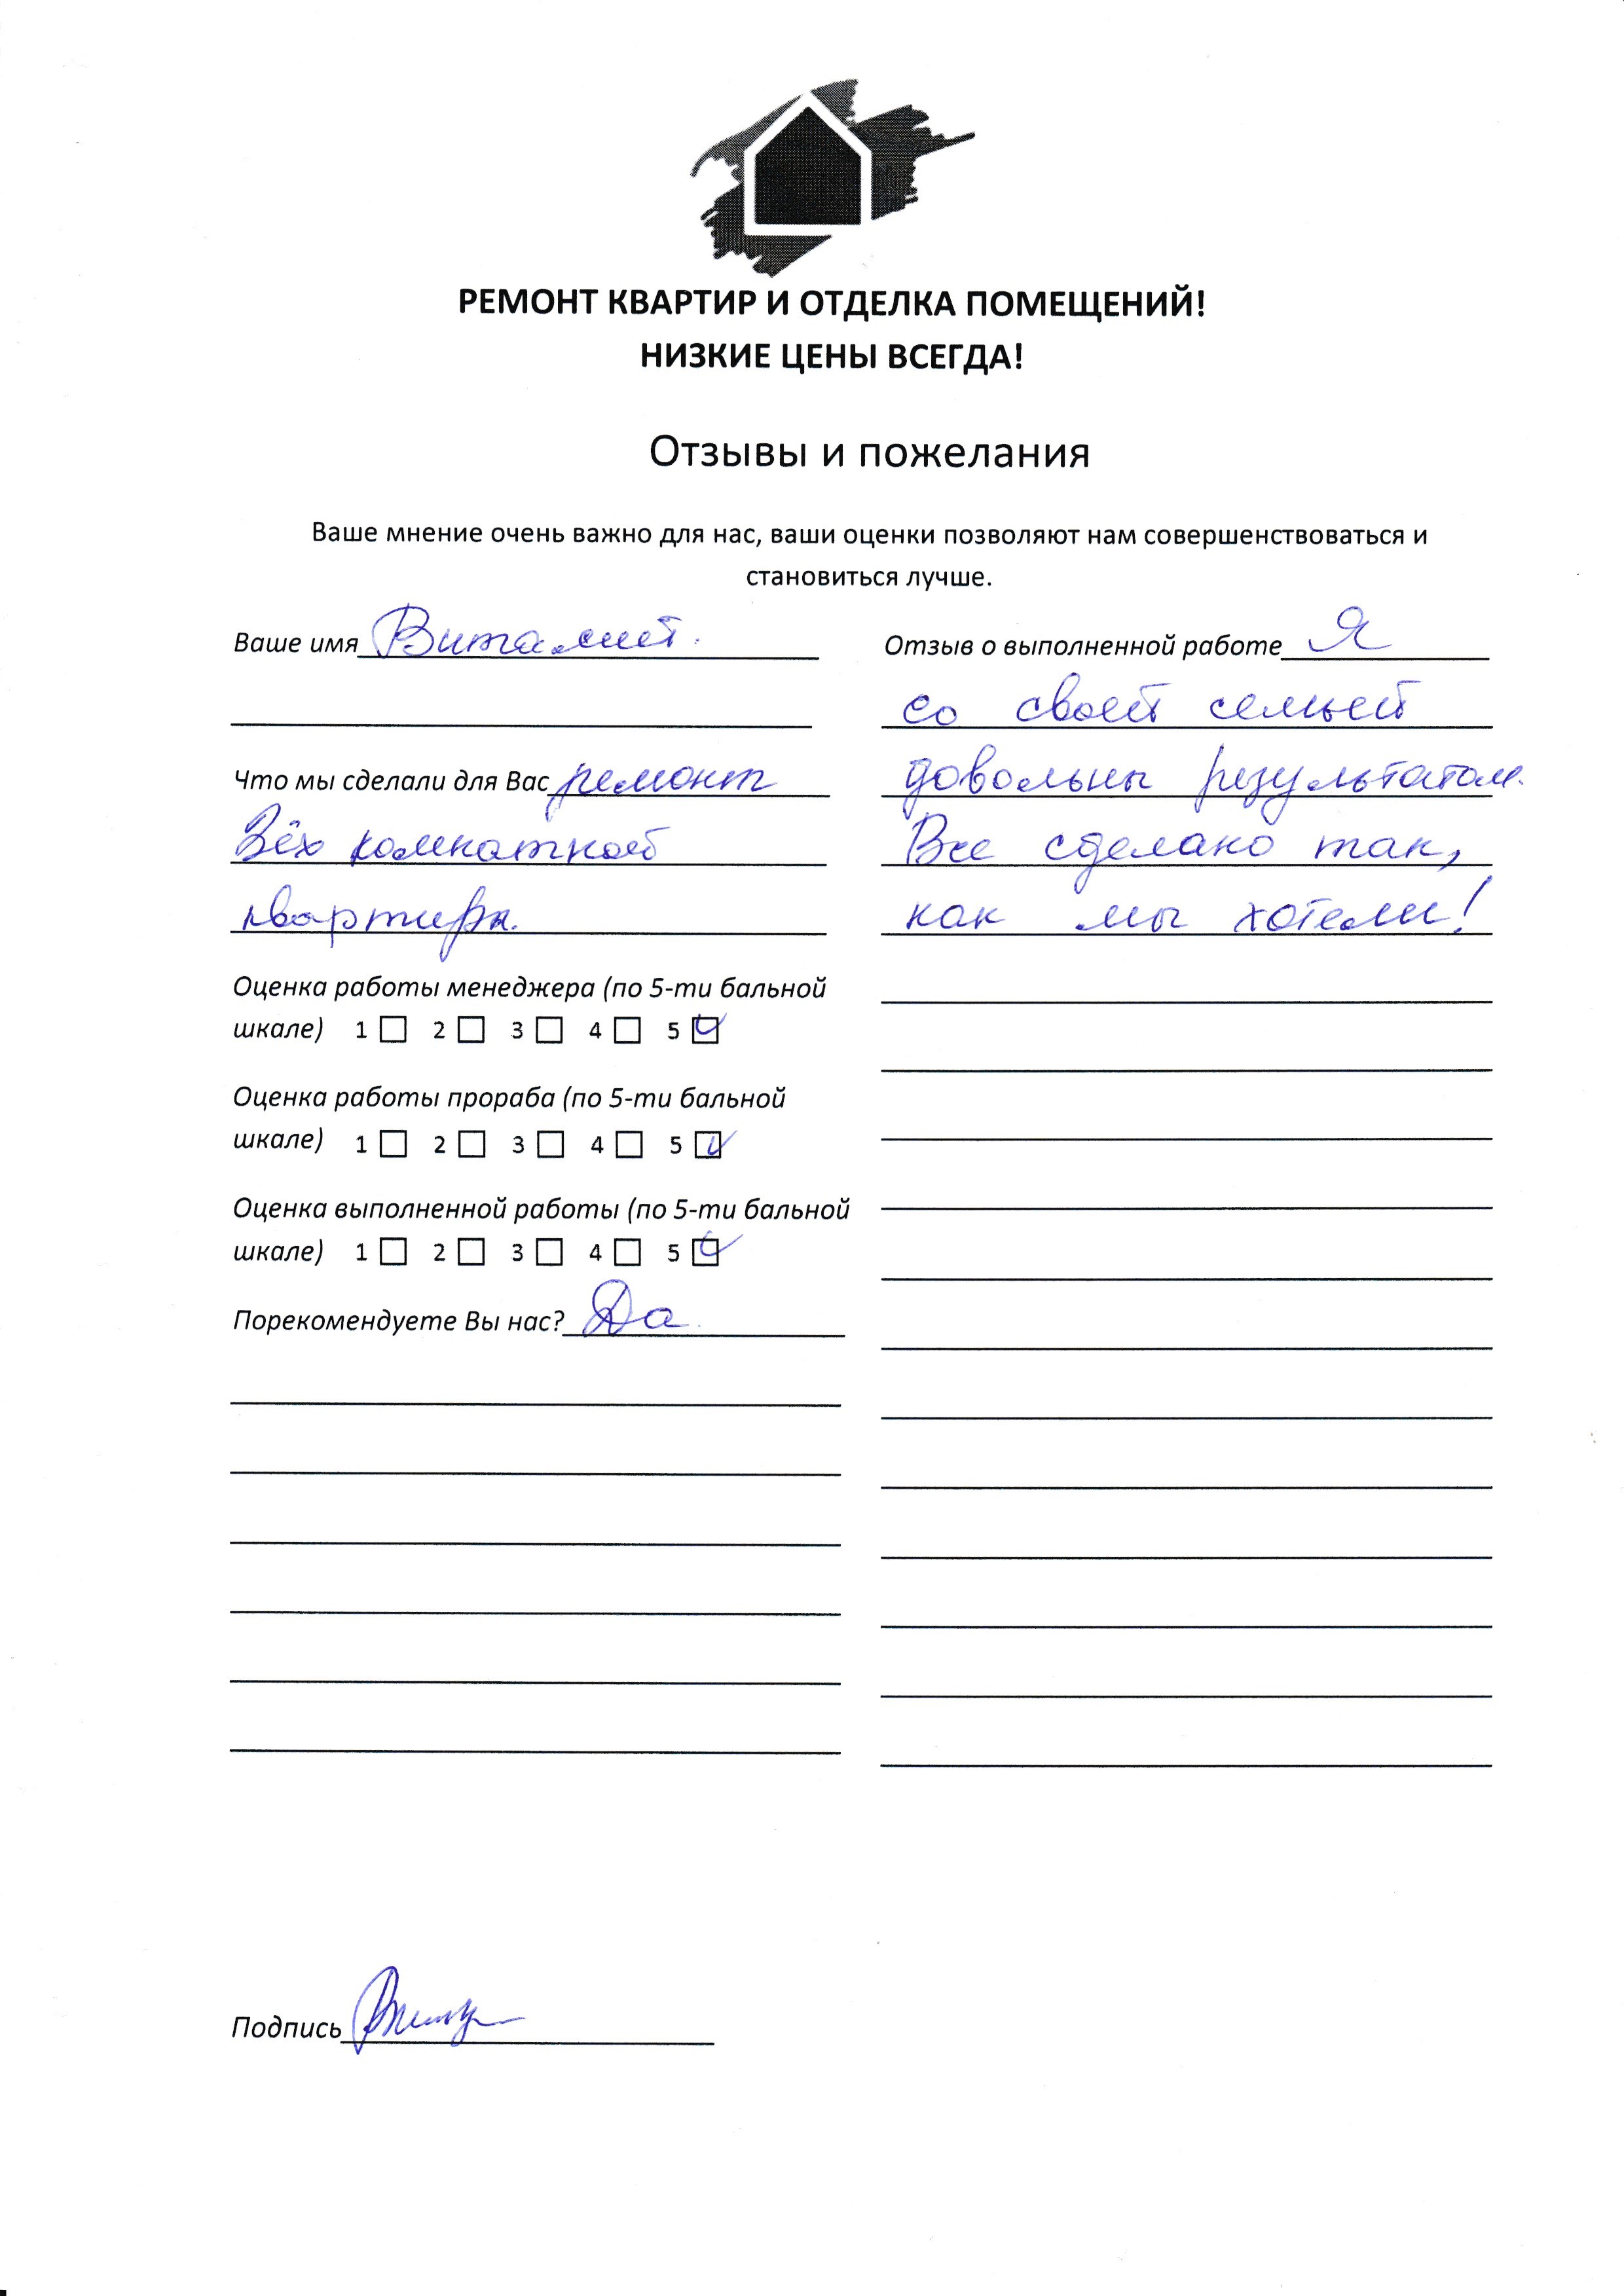 РЕМОНТ КВАРТИР И ОТДЕЛКА ПОМЕЩЕНИЙ!
НИЗКИЕ ЦЕНЫ ВСЕГДА!
Отзывы и пожелания
Ваше мнение очень важно для нас, ваши оценки позволяют нам совершенствоваться и
становиться лучше.
Ваше имя Виталий.
Что мы сделали для Вас ремонт
3ёх комнатной
квартиры.
Оценка работы менеджера (по 5-ти бальной
шкале) 1 2 3 4 5
Оценка работы прораба (по 5-ти бальной
шкале) 1 2 3 4 5
Оценка выполненной работы (по 5-ти бальной
шкале) 1 2 3 4 5
Порекомендуете Вы нас? Да.
Отзыв о выполненной работе Я
со своей семьей
довольны результатом.
Все сделано так,
как мы хотели!
Подпись